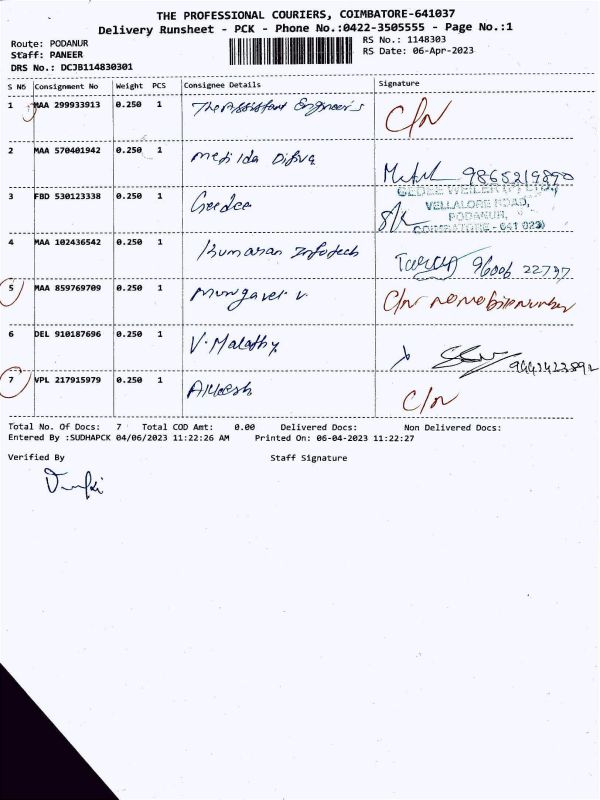 THE PROFESSIONAL COURIERS, COIMBATORE-641037
Delivery Runsheet - PCK - Phone No.:0422-3505555 - Page No.:1
Route: PODANUR
Staff: PANEER
DRS No.: DCJB114830301
RS No.: 1148303
RS Date: 06-Apr-2023
S No Consignment No Weight PCS Consignee Details Signature
1 MAA 299933913 0.250 1 The Assistant Engineer's C/N
2 MAA 570401942 0.250 1 9865219890
3 FBD 530123338 0.250 1 Geedee
GEDEE WEILER (P) LTD.,
VELLALORE ROAD,
PODANUR,
COIMBATORE - 641 023
4 MAA 102436542 0.250 1 Kumaran Infotech 96006 22797
5 MAA 859769709 0.250 1 C/N no mobile number
6 DEL 910187696 0.250 1 V. Malathy
7 VPL 217915979 0.250 1 C/N
Total No. Of Docs: 7 Total COD Amt: 0.00 Delivered Docs: Non Delivered Docs:
Entered By :SUDHAPCK 04/06/2023 11:22:26 AM Printed On: 06-04-2023 11:22:27
Verified By Staff Signature